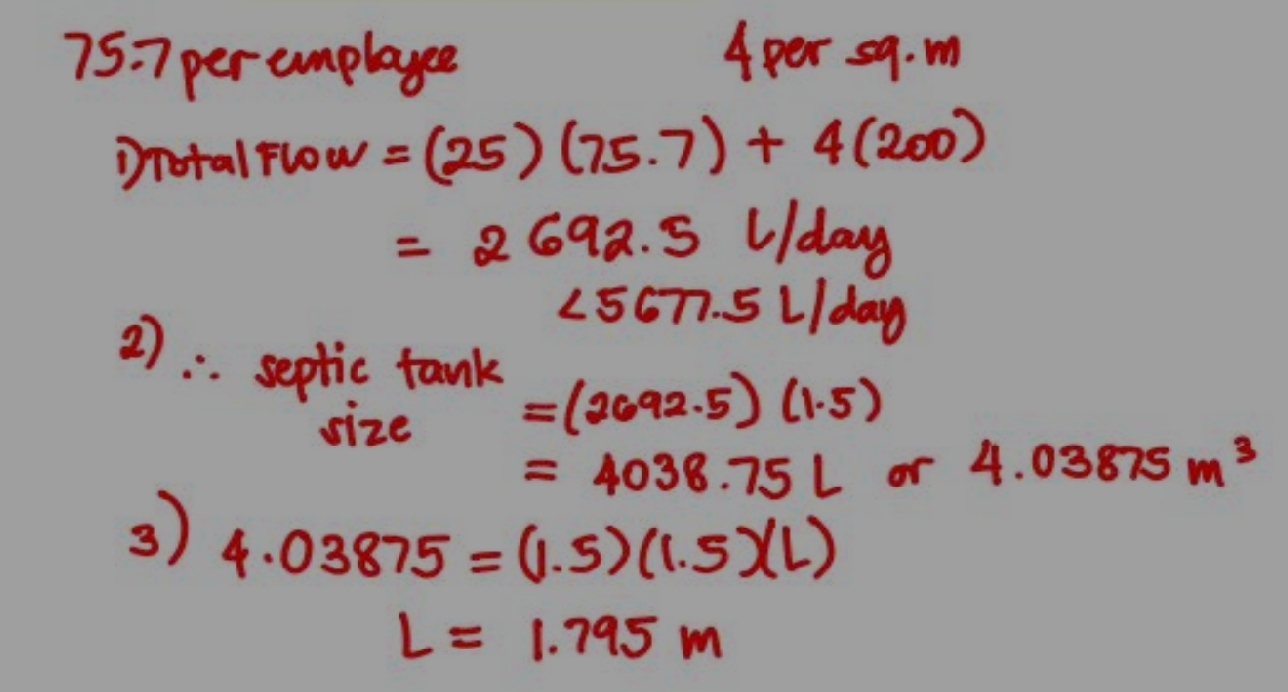 75.7 per employee 4 per sq. m
1) Total Flow = (25) (75.7) + 4(200)
= 2692.5 L/day
<5677.5 L/day
2) ∴ septic tank size = (2692.5) (1.5)
= 4038.75 L or 4.03875 m³
3) 4.03875 = (1.5)(1.5)(L)
L = 1.795 m